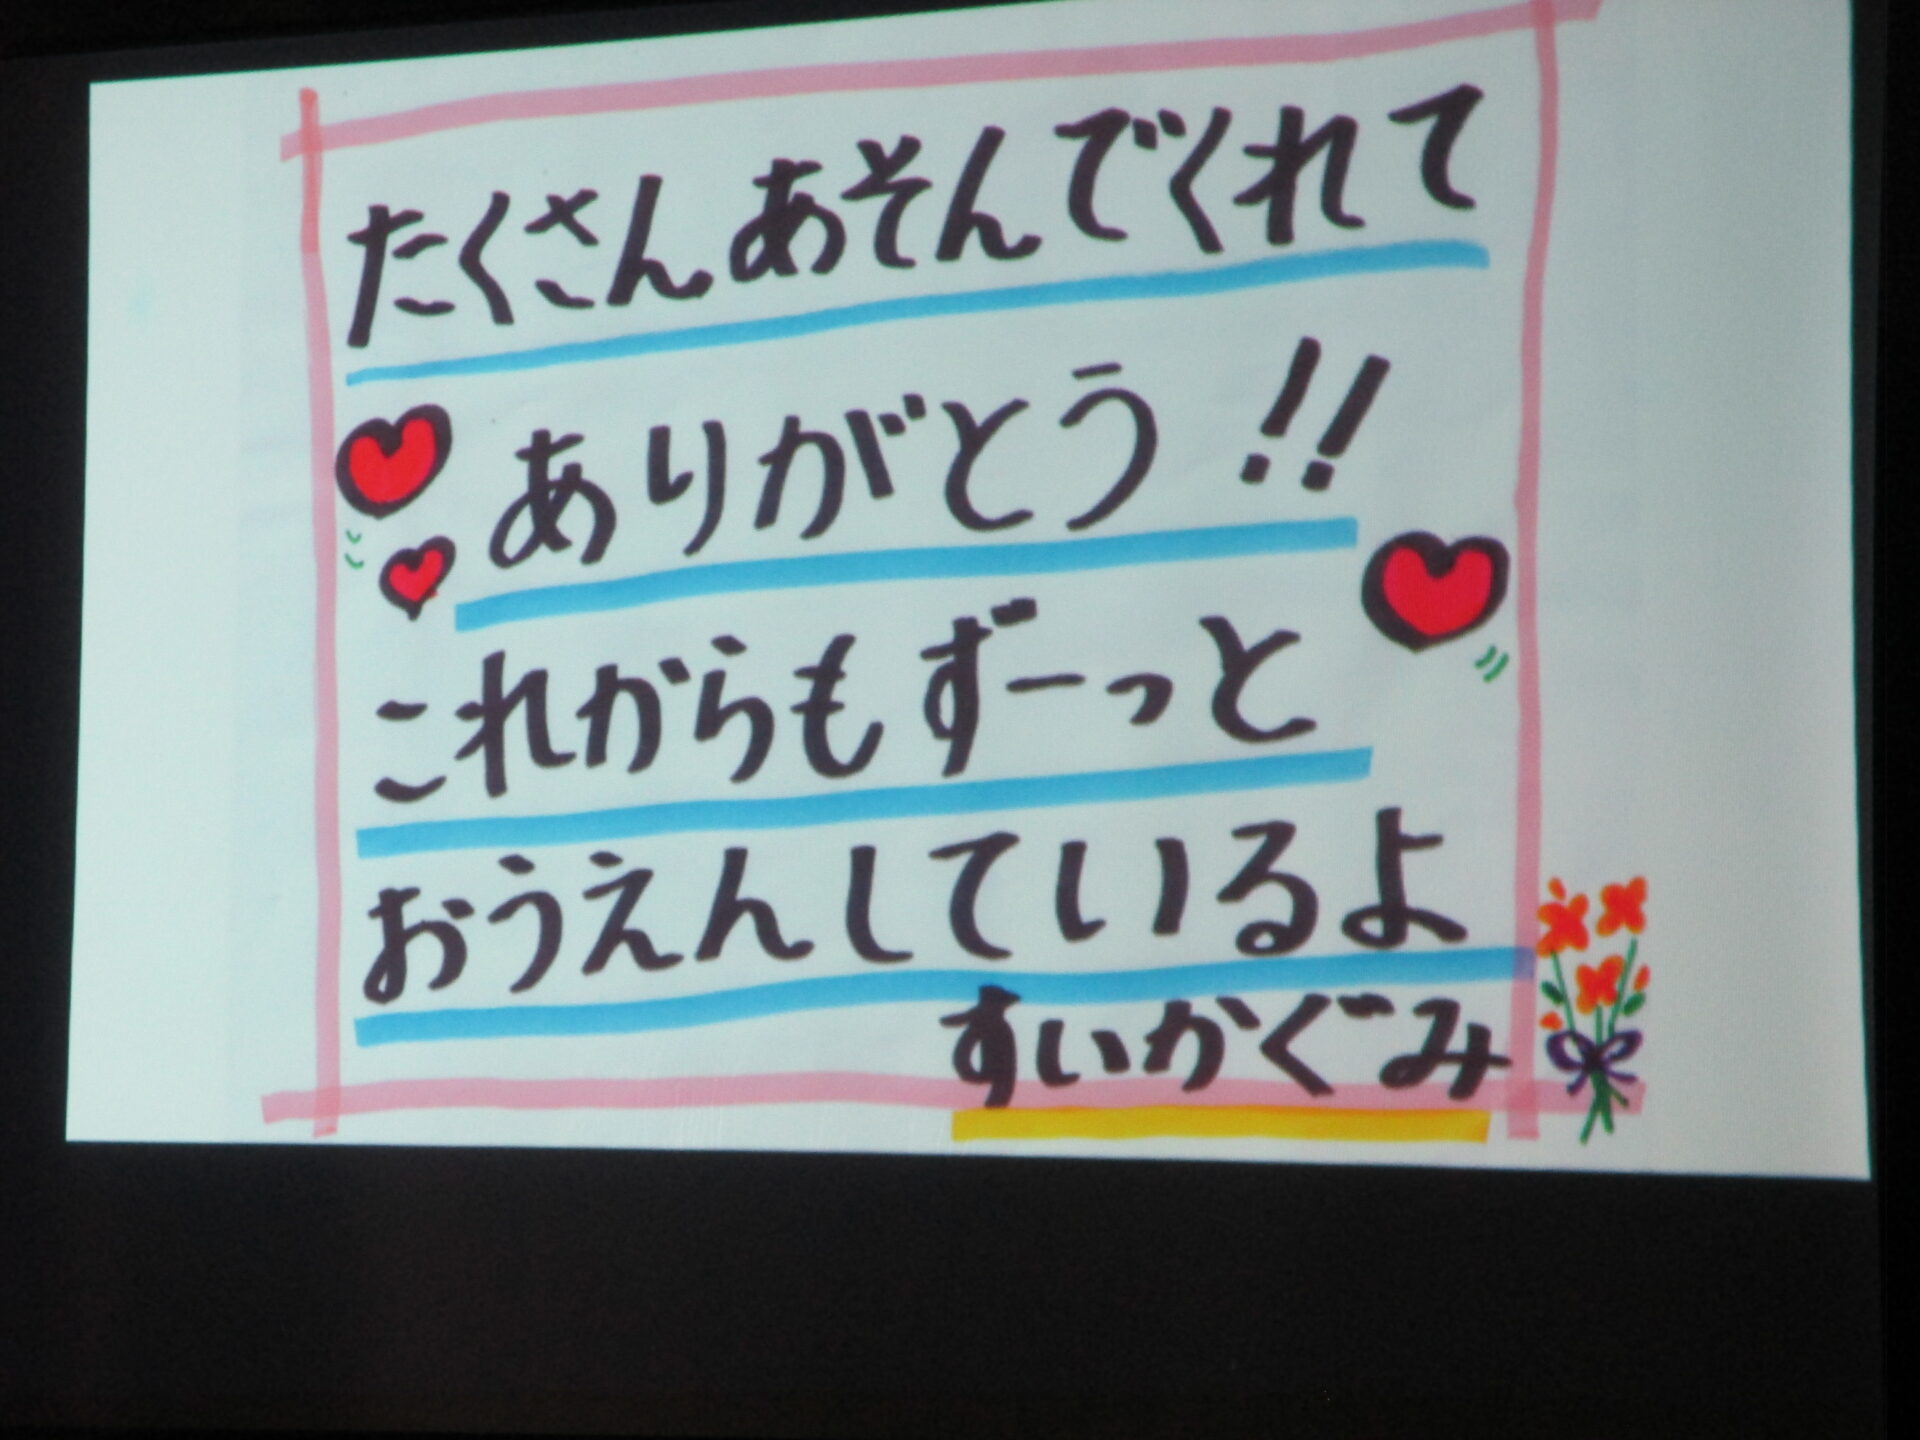 たくさんあそんでくれて
ありがとう!!
これからもずーっと
おうえんしているよ
すいかぐみ